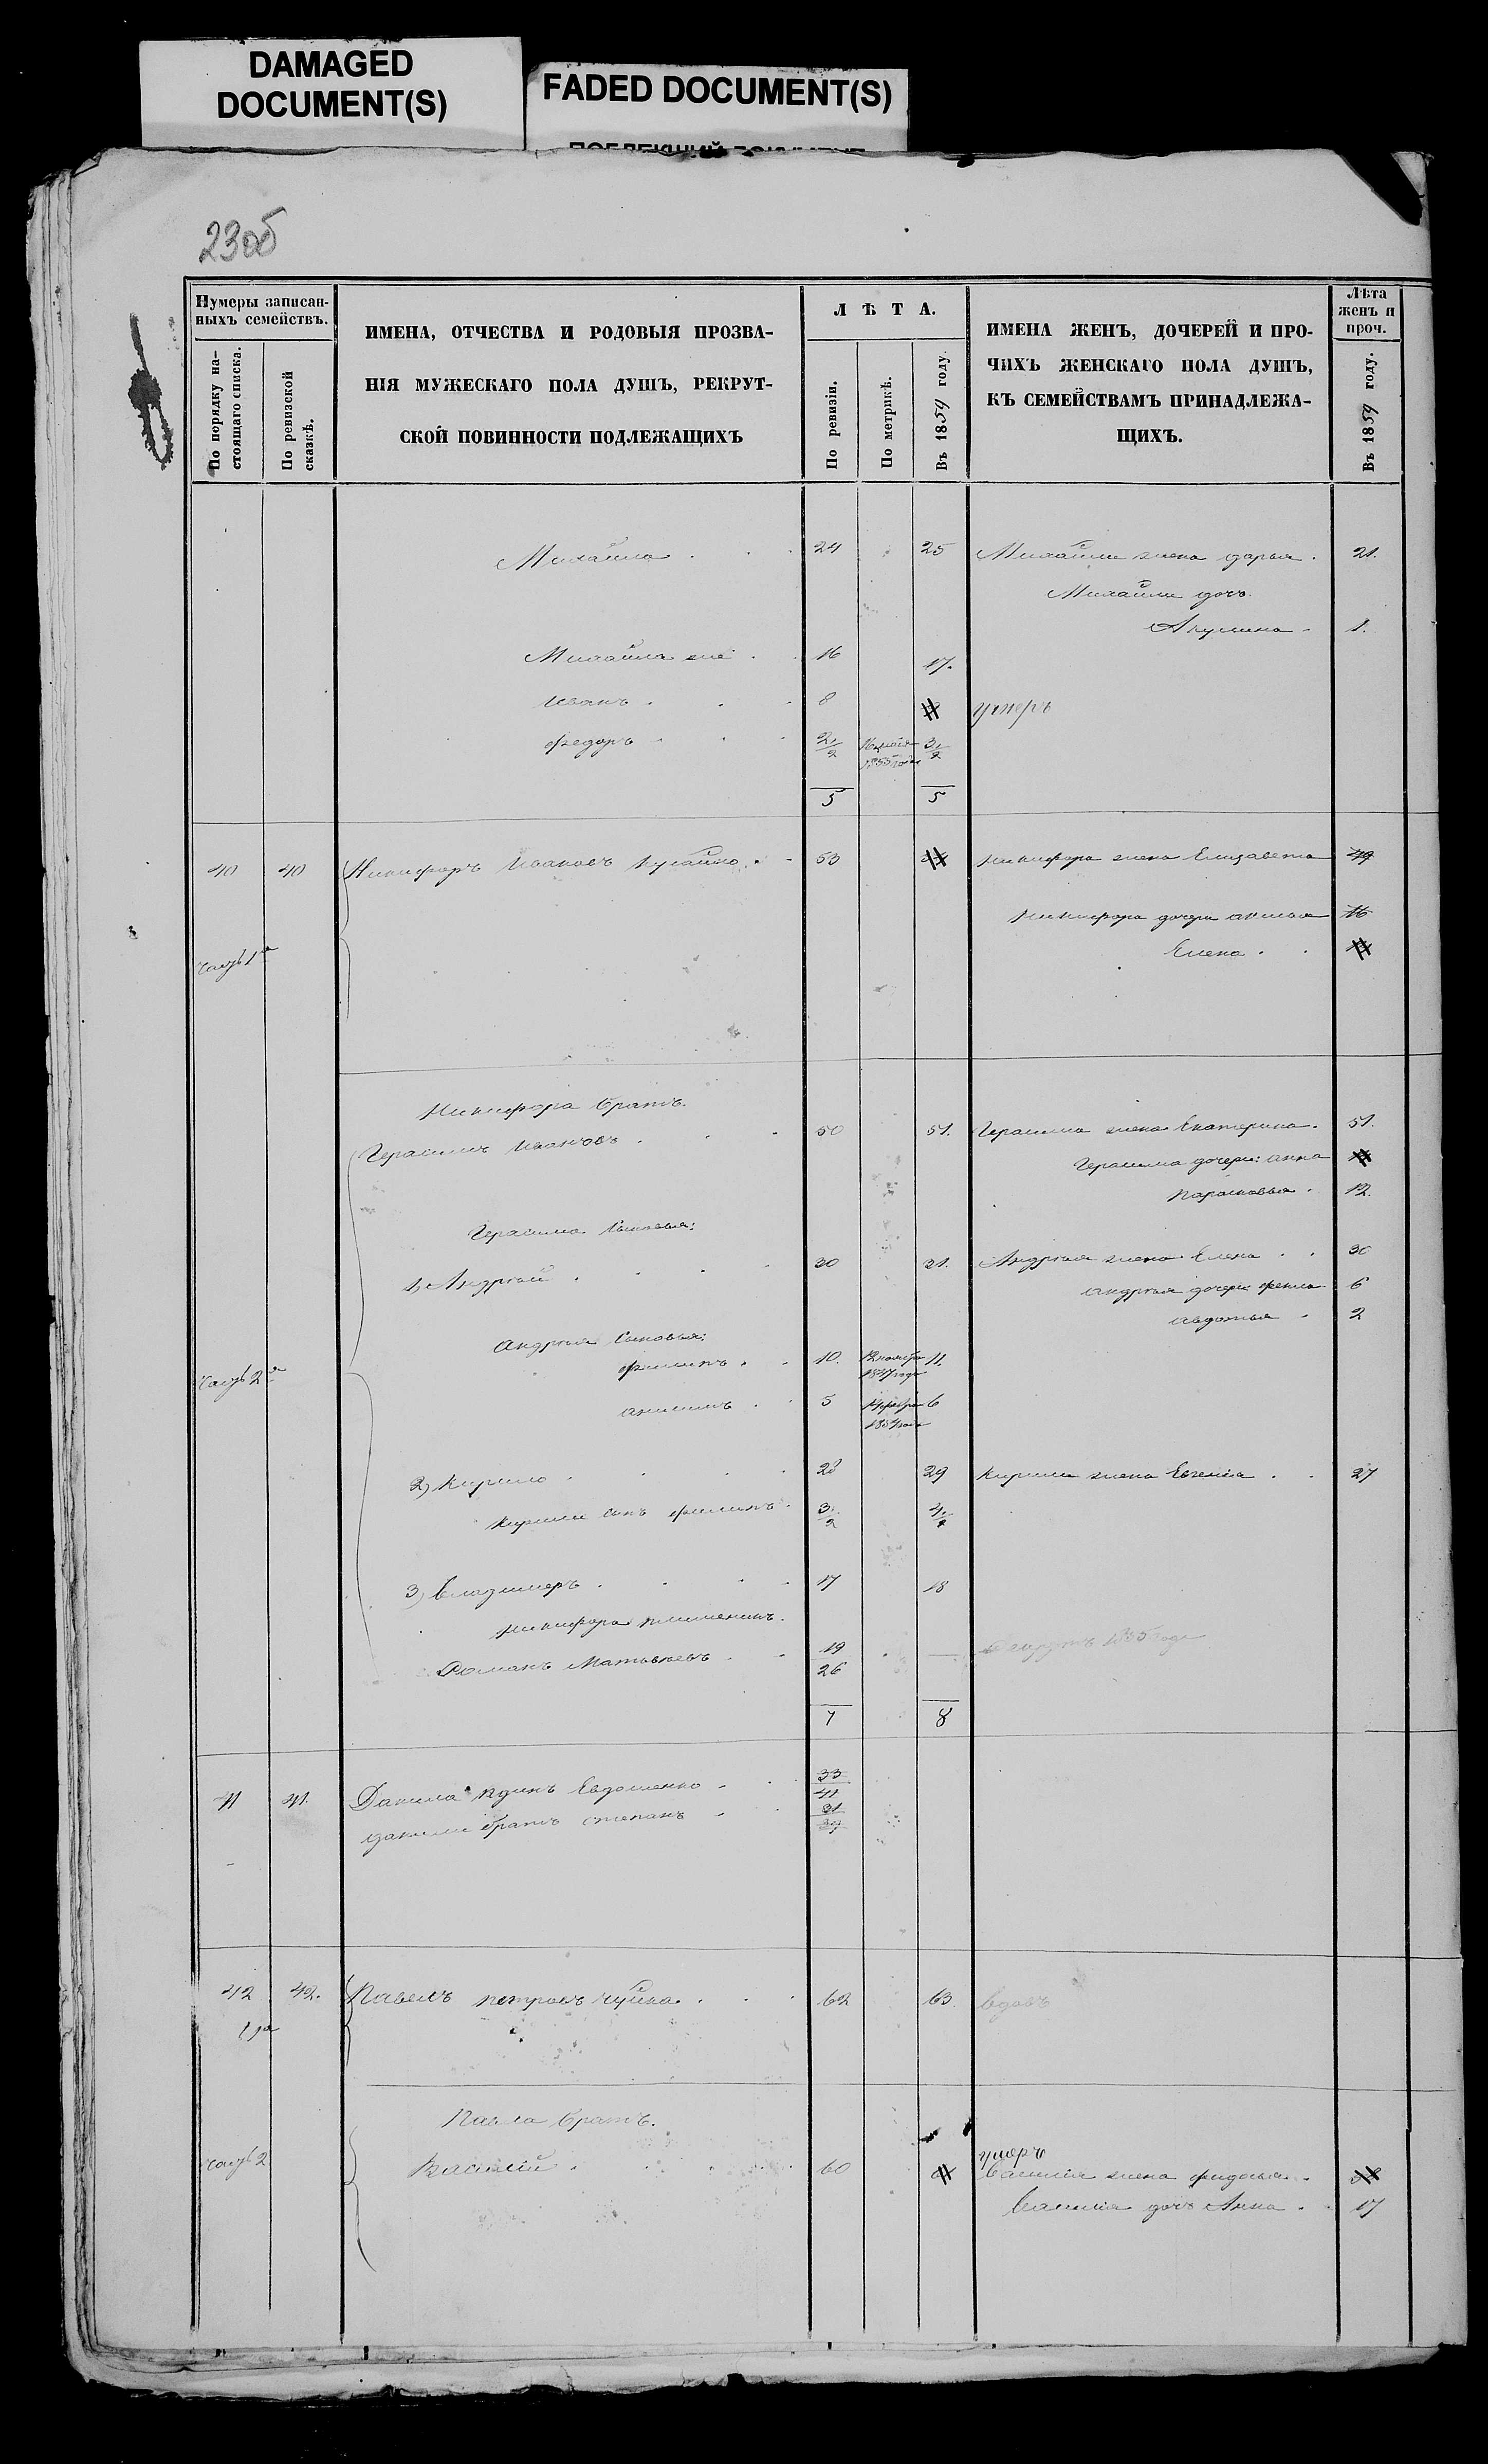 DAMAGED
DOCUMENT(S)
FADED DOCUMENT(S)
230б
Нумеры записан-
ныхъ семействъ.
По порядку на-
стоящаго списка.
По ревизской
сказкѣ.
ИМЕНА, ОТЧЕСТВА И РОДОВЫЯ ПРОЗВА-
НІЯ МУЖЕСКАГО ПОЛА ДУШЪ, РЕКРУТ-
СКОЙ ПОВИННОСТИ ПОДЛЕЖАЩИХЪ
ЛѢТА.
По ревизіи.
По метрикѣ.
Въ 1859 году.
ИМЕНА ЖЕНЪ, ДОЧЕРЕЙ И ПРО-
ЧИХЪ ЖЕНСКАГО ПОЛА ДУШЪ,
КЪ СЕМЕЙСТВАМЪ ПРИНАДЛЕЖА-
ЩИХЪ.
Лѣта
женъ и
проч.
Въ 1859 году.
Михайла 24 25 Михайли жена дарья 21.
Михайли дочь
Акулина 1.
Михаилъ 16 17.
Иванъ 8 умеръ
Федоръ 2 1/2 1855 года 3 1/2
5 5
40 40 Никифоръ Ивановъ 53 Никифора жена Елизавета 49
Никифора дочери 16
часть 1я Елена
Никифора братъ
Герасимъ Ивановъ 50 51. Герасима жена Екатерина 51.
Герасима дочери: анна
Парасковья 12.
Герасима Сыновья:
1) Андрей 30 31. Андрея жена Елена 30
Андрея дочери 6
авдотья 2
Андрея Сыновья:
Филипъ 10. 12 ноября 11.
1847 года
часть 2я
5 6
2) Кирило 28 29 Кирили жена Евгенія 27
Кирили сынъ филипъ 3 1/2
3) Владимеръ 17 18
Никифора племеникъ
Романъ Матвѣевъ 19 — Рекрутъ 1855 года
26
7 8
41 41. Данила Евдоменко 33
41
данили братъ степанъ 31
39
42 42. Павелъ петровъ чуйка 62 63. вдовъ
Павла братъ.
умеръ
часть 2 Василій 60 Василія жена
Василія дочь Анна 17